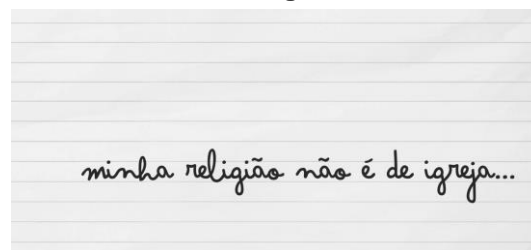 minha religião não é de igreja...